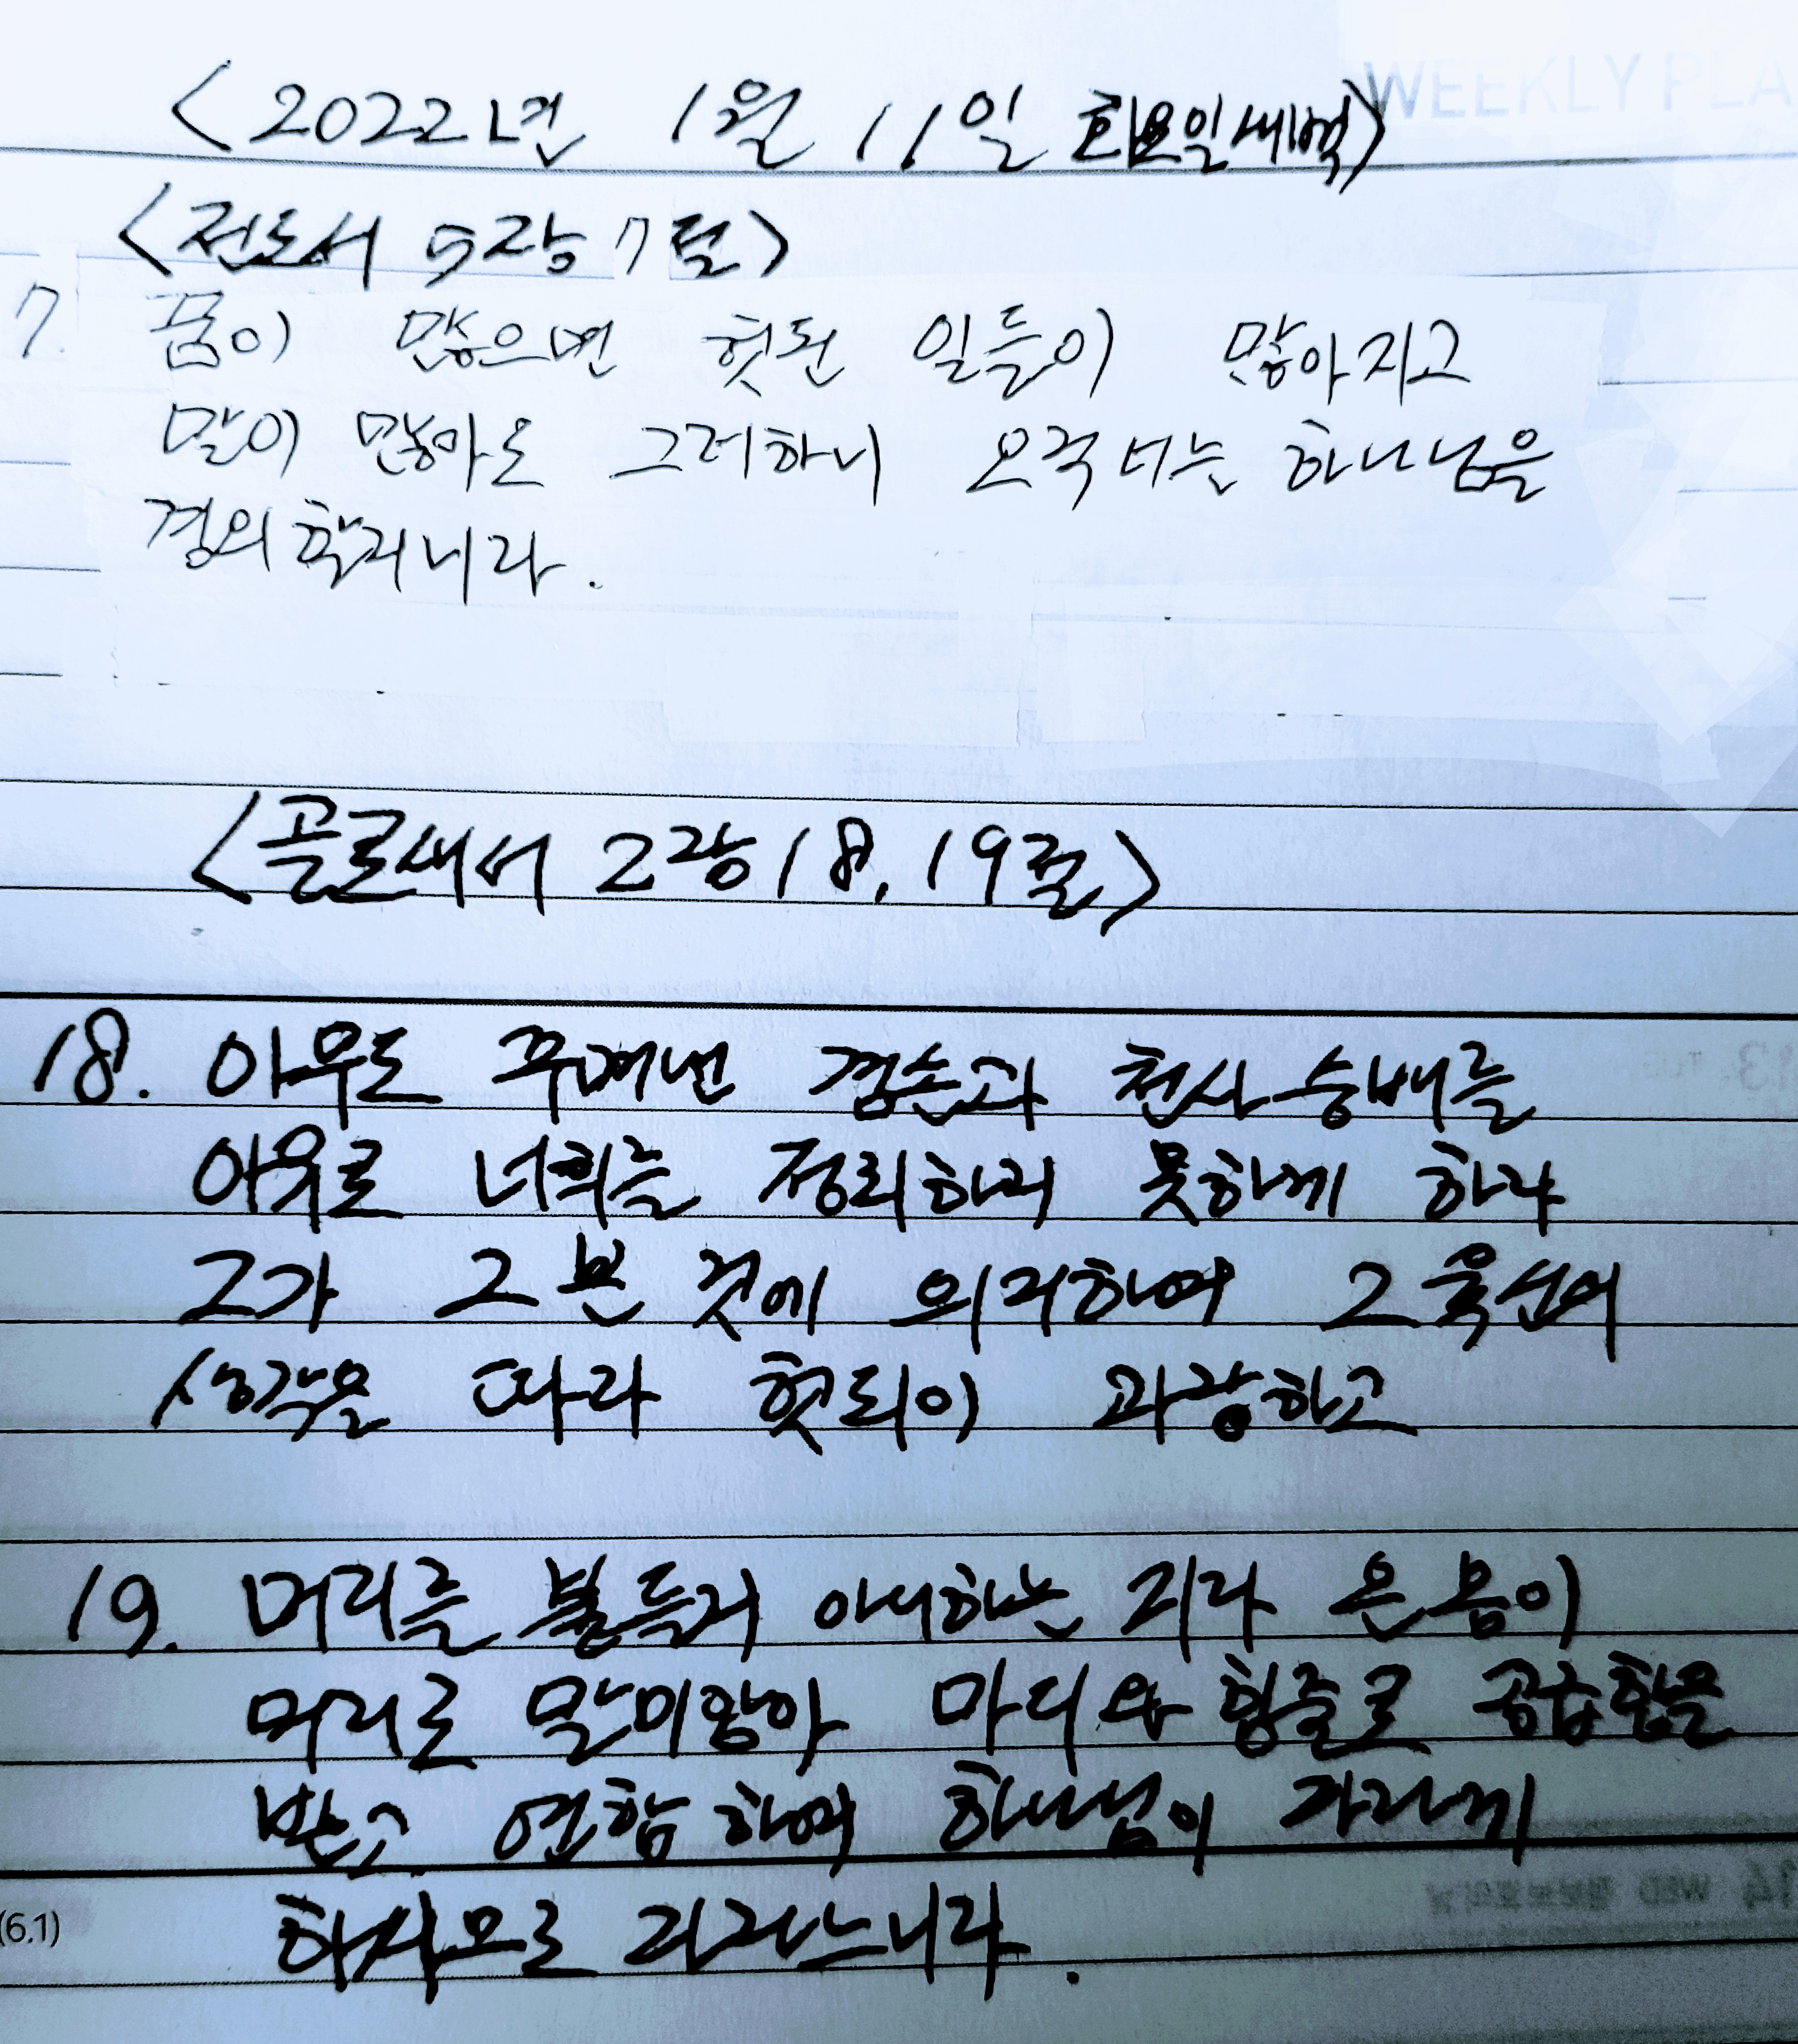 WEEKLY PLA
<2022년 1월 11일 화요일새벽>
<전도서 5장 7절>
7. 꿈이 많으면 헛된 일들이 많아지고
말이 많아도 그러하니 오직 너는 하나님을
경외할지니라.
<골로새서 2장 18, 19절>
18. 아무도 꾸며낸 겸손과 천사 숭배를
이유로 너희를 정죄하지 못하게 하라
그가 그 본 것에 의지하여 그 육신의
생각을 따라 헛되이 과장하고
19. 머리를 붙들지 아니하는 지라 온 몸이
머리로 말미암아 마디와 힘줄로 공급함을
받고 연합하여 하나님이 자라게
하시므로 자라느니라.
(6.1)